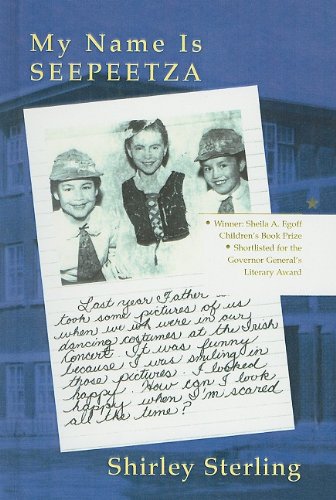 My Name Is
SEEPEETZA
• Winner: Sheila A. Egoff
Children's Book Prize
• Shortlisted for the
Governor General's
Literary Award
Last year Father
took some pictures of us
when we were in our
dancing costumes at the Irish
Concert. It was funny
because I was smiling in
those pictures. I looked
happy. How can I look
happy when I'm scared
all the time?
Shirley Sterling